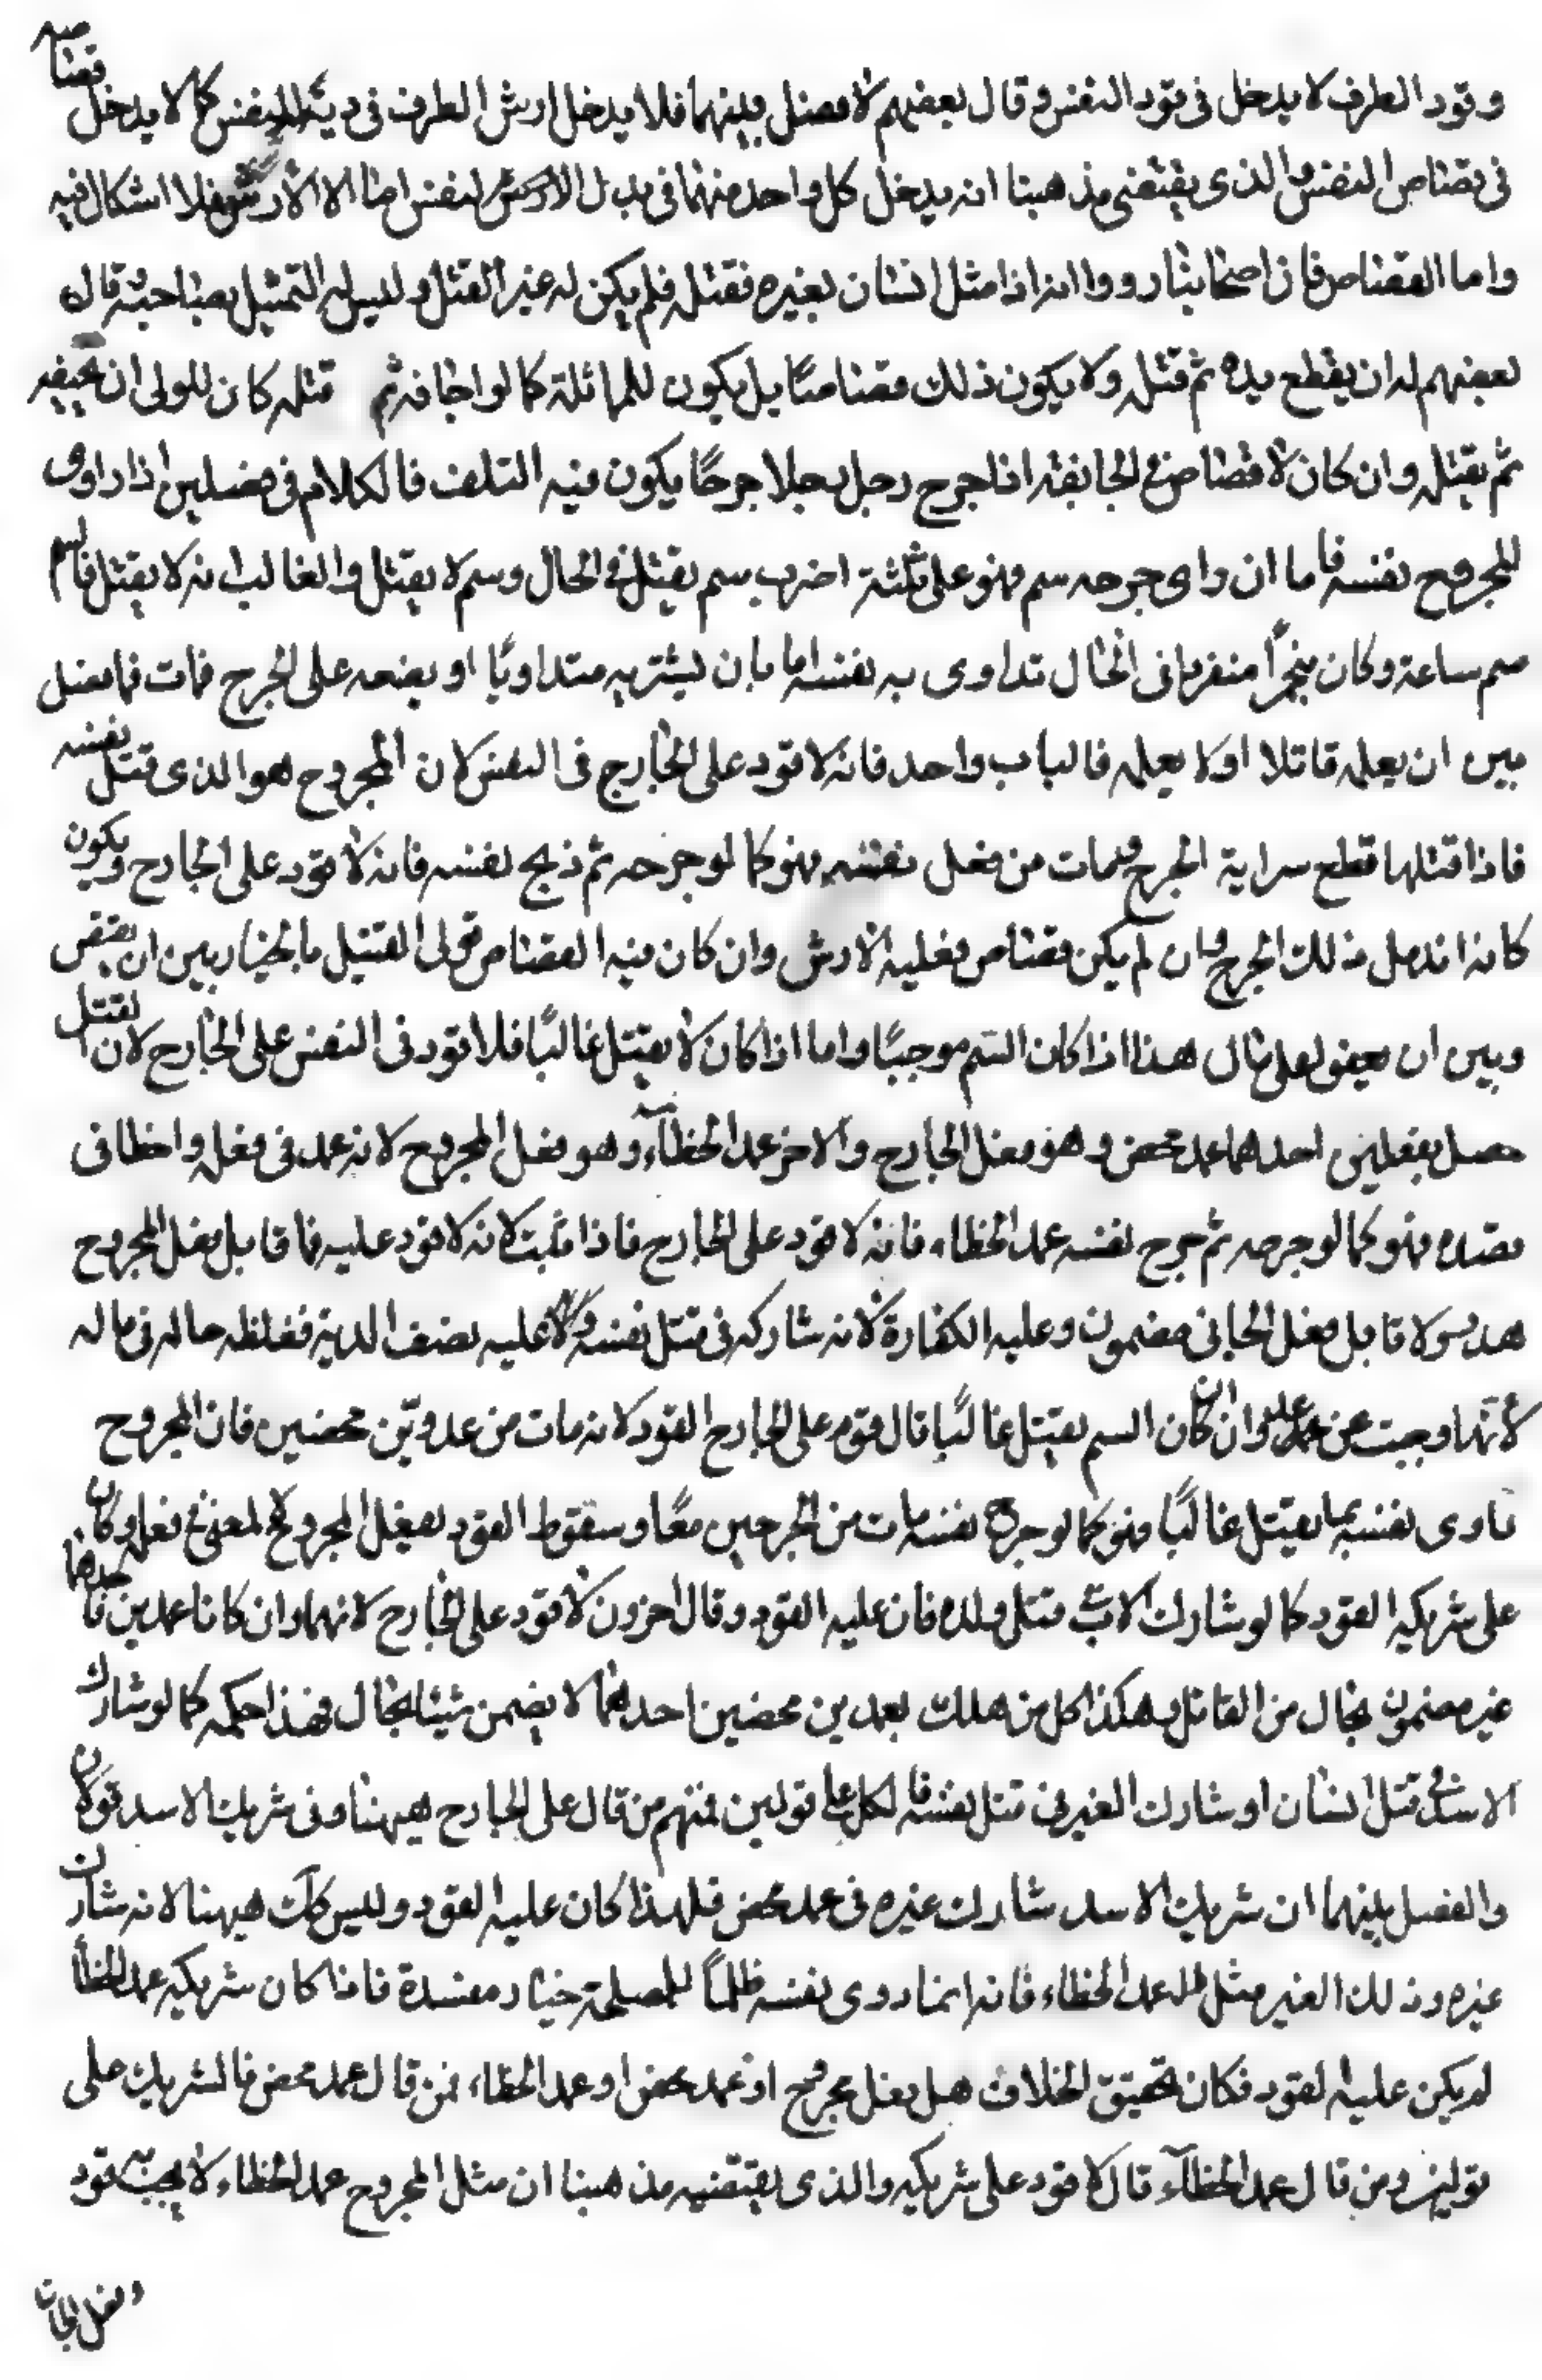 وقود الطرف لا يدخل فى قود النفس وقال بعضهم لا فصل بينهما فلا يدخل ارش الطرف فى دية النفس كما لا يدخل قصاصه
فى قصاص النفس والذى يقتضى مذهبنا انه يدخل كل واحد منهما فى بدل النفس اما الارش فلا اشكال فيه
واما القصاص فان اصحابنا رووا انه اذا مثل انسان بغيره فقتله فلم يكن له غير القتل وليس له التمثيل بصاحبه قال
بعضهم له ان يقطع يده ثم قتله ولا يكون ذلك قصاصا بل يكون للماثلة كما لو اجافه ثم قتله كان للولى ان يجيفه
ثم يقتله وان كان لا قصاص فى الجايفة اذا جرح رجل رجلا جرحًا يكون فيه التلف فالكلام فى فصلين اذا داوى
المجروح نفسه فاما ان داوى جرحه سم فهو على ثلثة اضرب سم يقتل فى الحال وسم لا يقتل والغالب انه لا يقتل فالسم
سم ساعة وكان مجهزًا فى الحال تداوى به نفسه اما بان يشربه متداويًا او يضعه على الجرح فمات فما فصل
بين ان يعلمه قاتلا او لا يعلمه فالباب واحد فانه لا قود على الجارح فى النفس لان المجروح هو الذى قتل نفسه
فاذا قتلها قطع سراية الجرح فمات من فعل نفسه فهو كما لو جرحه ثم ذبح نفسه فانه لا قود على الجارح ويكون
كانه اندمل ذلك الجرح فان لم يكن قصاص فعليه الارش وان كان فيه القصاص فولى القتيل بالخيار بين ان يقتص
وبين ان يعفو على مال هذا اذا كان السم موجبًا واما اذا كان لا يقتل غالبًا فلا قود فى النفس على الجارح لان القتل
حصل بفعلين احدهما عمد محض وهو فعل الجارح والاخر عمد الخطاء وهو فعل المجروح لانه عمد فى فعله واخطا فى
قصده فهو كما لو جرحه ثم جرح نفسه عمد الخطاء فانه لا قود على الجارح فاذا ثبت انه لا قود عليه فما قابل فعل المجروح
هدر وما قابل فعل الجانى مضمون وعليه الكفارة لانه شاركه فى قتل نفسه وعليه نصف الدية مغلظه حاله فى ماله
لانها وجبت عن عمد وان كان السم يقتل غالبًا قال قوم على الجارح القود لانه مات من عمدين محضين فان المجروح
داوى نفسه بما يقتل غالبًا فهو كما لو جرح نفسه مات من الجرحين معًا وسقوط القود بفعل المجروح لمعنى فى فعله وكان
على شريكه القود كما لو شارك الاب فى قتل ولده فان عليه القود وقال اخرون لا قود على الجارح لانهما وان كانا عمدين فاحدهما
غير مضمون بحال من القاتل وهكذا كل من هلك بعمدين محضين احدهما لا يضمن شيئا بحال فهذا حكمه كما لو شارك
الاسد فى قتل انسان او شارك الغير فى قتل نفسه فالكل على قولين فمنهم من قال على الجارح هيهنا وفى شريك الاسد قولان
والفصل بينهما ان شريك الاسد شارك غيره فى عمد محض فلهذا كان عليه القود وليس كك هيهنا لانه شارك
غيره وذلك الغير مثل عمد الخطاء فانه انما دوى نفسه للمصلحة فاذا كان شريكه عمد الخطا
لم يكن عليه القود فكان تحقيق الخلاف هل فعل مجروح عمد محض او عمد الخطاء فمن قال عمد محض فالشريك على
قولين ومن قال عمد الخطآء قال لا قود على شريكه والذى يقتضيه مذهبنا ان مثل المجروح عمد الخطاء لا يجب به قود
وفعل الجانى